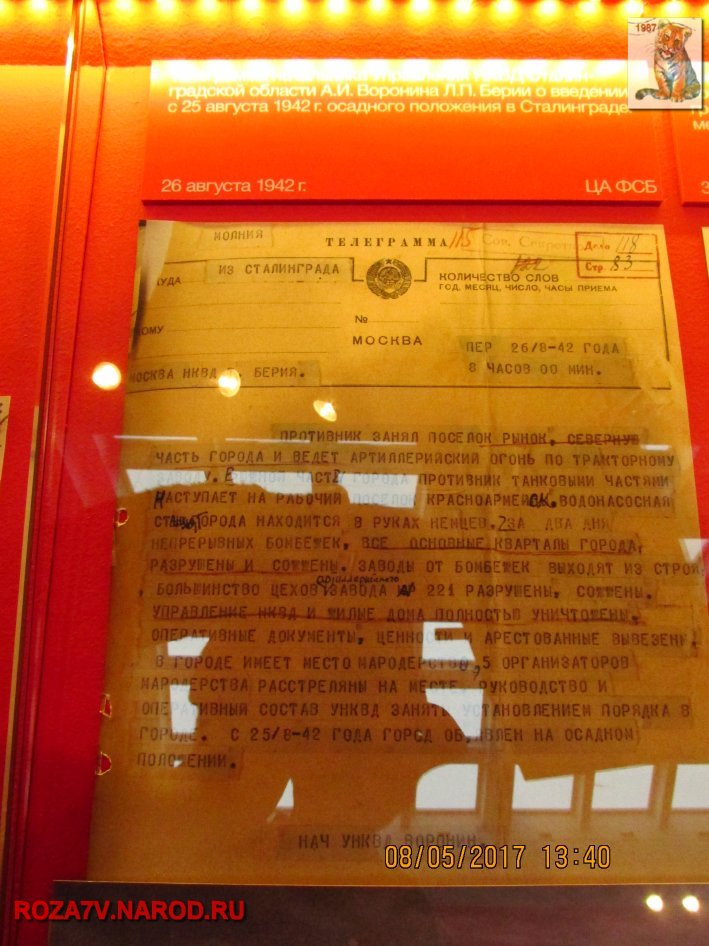 1987
градской области А.И. Воронина Л.П. Берии о введении
с 25 августа 1942 г. осадного положения в Сталинграде.
26 августа 1942 г. ЦА ФСБ
МОЛНИЯ
ТЕЛЕГРАММА 115 Сов. Секретно
Дело 118
Стр. 83
122
ИЗ СТАЛИНГРАДА
КУДА
КОЛИЧЕСТВО СЛОВ
ГОД, МЕСЯЦ, ЧИСЛО, ЧАСЫ ПРИЕМА
КОМУ
№
МОСКВА
ПЕР 26/8-42 ГОДА
8 ЧАСОВ 00 МИН.
МОСКВА НКВД БЕРИЯ.
ПРОТИВНИК ЗАНЯЛ ПОСЕЛОК РЫНОК, СЕВЕРНУЮ
ЧАСТЬ ГОРОДА И ВЕДЕТ АРТИЛЛЕРИЙСКИЙ ОГОНЬ ПО ТРАКТОРНОМУ
ЗАВОДУ. В ЮЖНОЙ ЧАСТИ ГОРОДА ПРОТИВНИК ТАНКОВЫМИ ЧАСТЯМИ
НАСТУПАЕТ НА РАБОЧИЙ ПОСЕЛОК КРАСНОАРМЕЙСК. ВОДОНАСОСНАЯ
ГОРОДА НАХОДИТСЯ В РУКАХ НЕМЦЕВ. ЗА ДВА ДНЯ
НЕПРЕРЫВНЫХ БОМБЕЖЕК, ВСЕ ОСНОВНЫЕ КВАРТАЛЫ ГОРОДА,
РАЗРУШЕНЫ И СОЖЖЕНЫ. ЗАВОДЫ ОТ БОМБЕЖЕК ВЫХОДЯТ ИЗ СТРОЯ
артиллерийского
, БОЛЬШИНСТВО ЦЕХОВ ЗАВОДА № 221 РАЗРУШЕНЫ, СОЖЖЕНЫ.
УПРАВЛЕНИЕ НКВД И ЖИЛЫЕ ДОМА ПОЛНОСТЬЮ УНИЧТОЖЕНЫ.
ОПЕРАТИВНЫЕ ДОКУМЕНТЫ, ЦЕННОСТИ И АРЕСТОВАННЫЕ ВЫВЕЗЕНЫ.
В ГОРОДЕ ИМЕЕТ МЕСТО МАРОДЕРСТВО, 5 ОРГАНИЗАТОРОВ
МАРОДЕРСТВА РАССТРЕЛЯНЫ НА МЕСТЕ, РУКОВОДСТВО И
ОПЕРАТИВНЫЙ СОСТАВ УНКВД ЗАНЯТЫ УСТАНОВЛЕНИЕМ ПОРЯДКА В
ГОРОДЕ. С 25/8-42 ГОДА ГОРОД ОБ'ЯВЛЕН НА ОСАДНОМ
ПОЛОЖЕНИИ.
НАЧ УНКВД ВОРОНИН
08/05/2017 13:40
ROZA7V.NAROD.RU